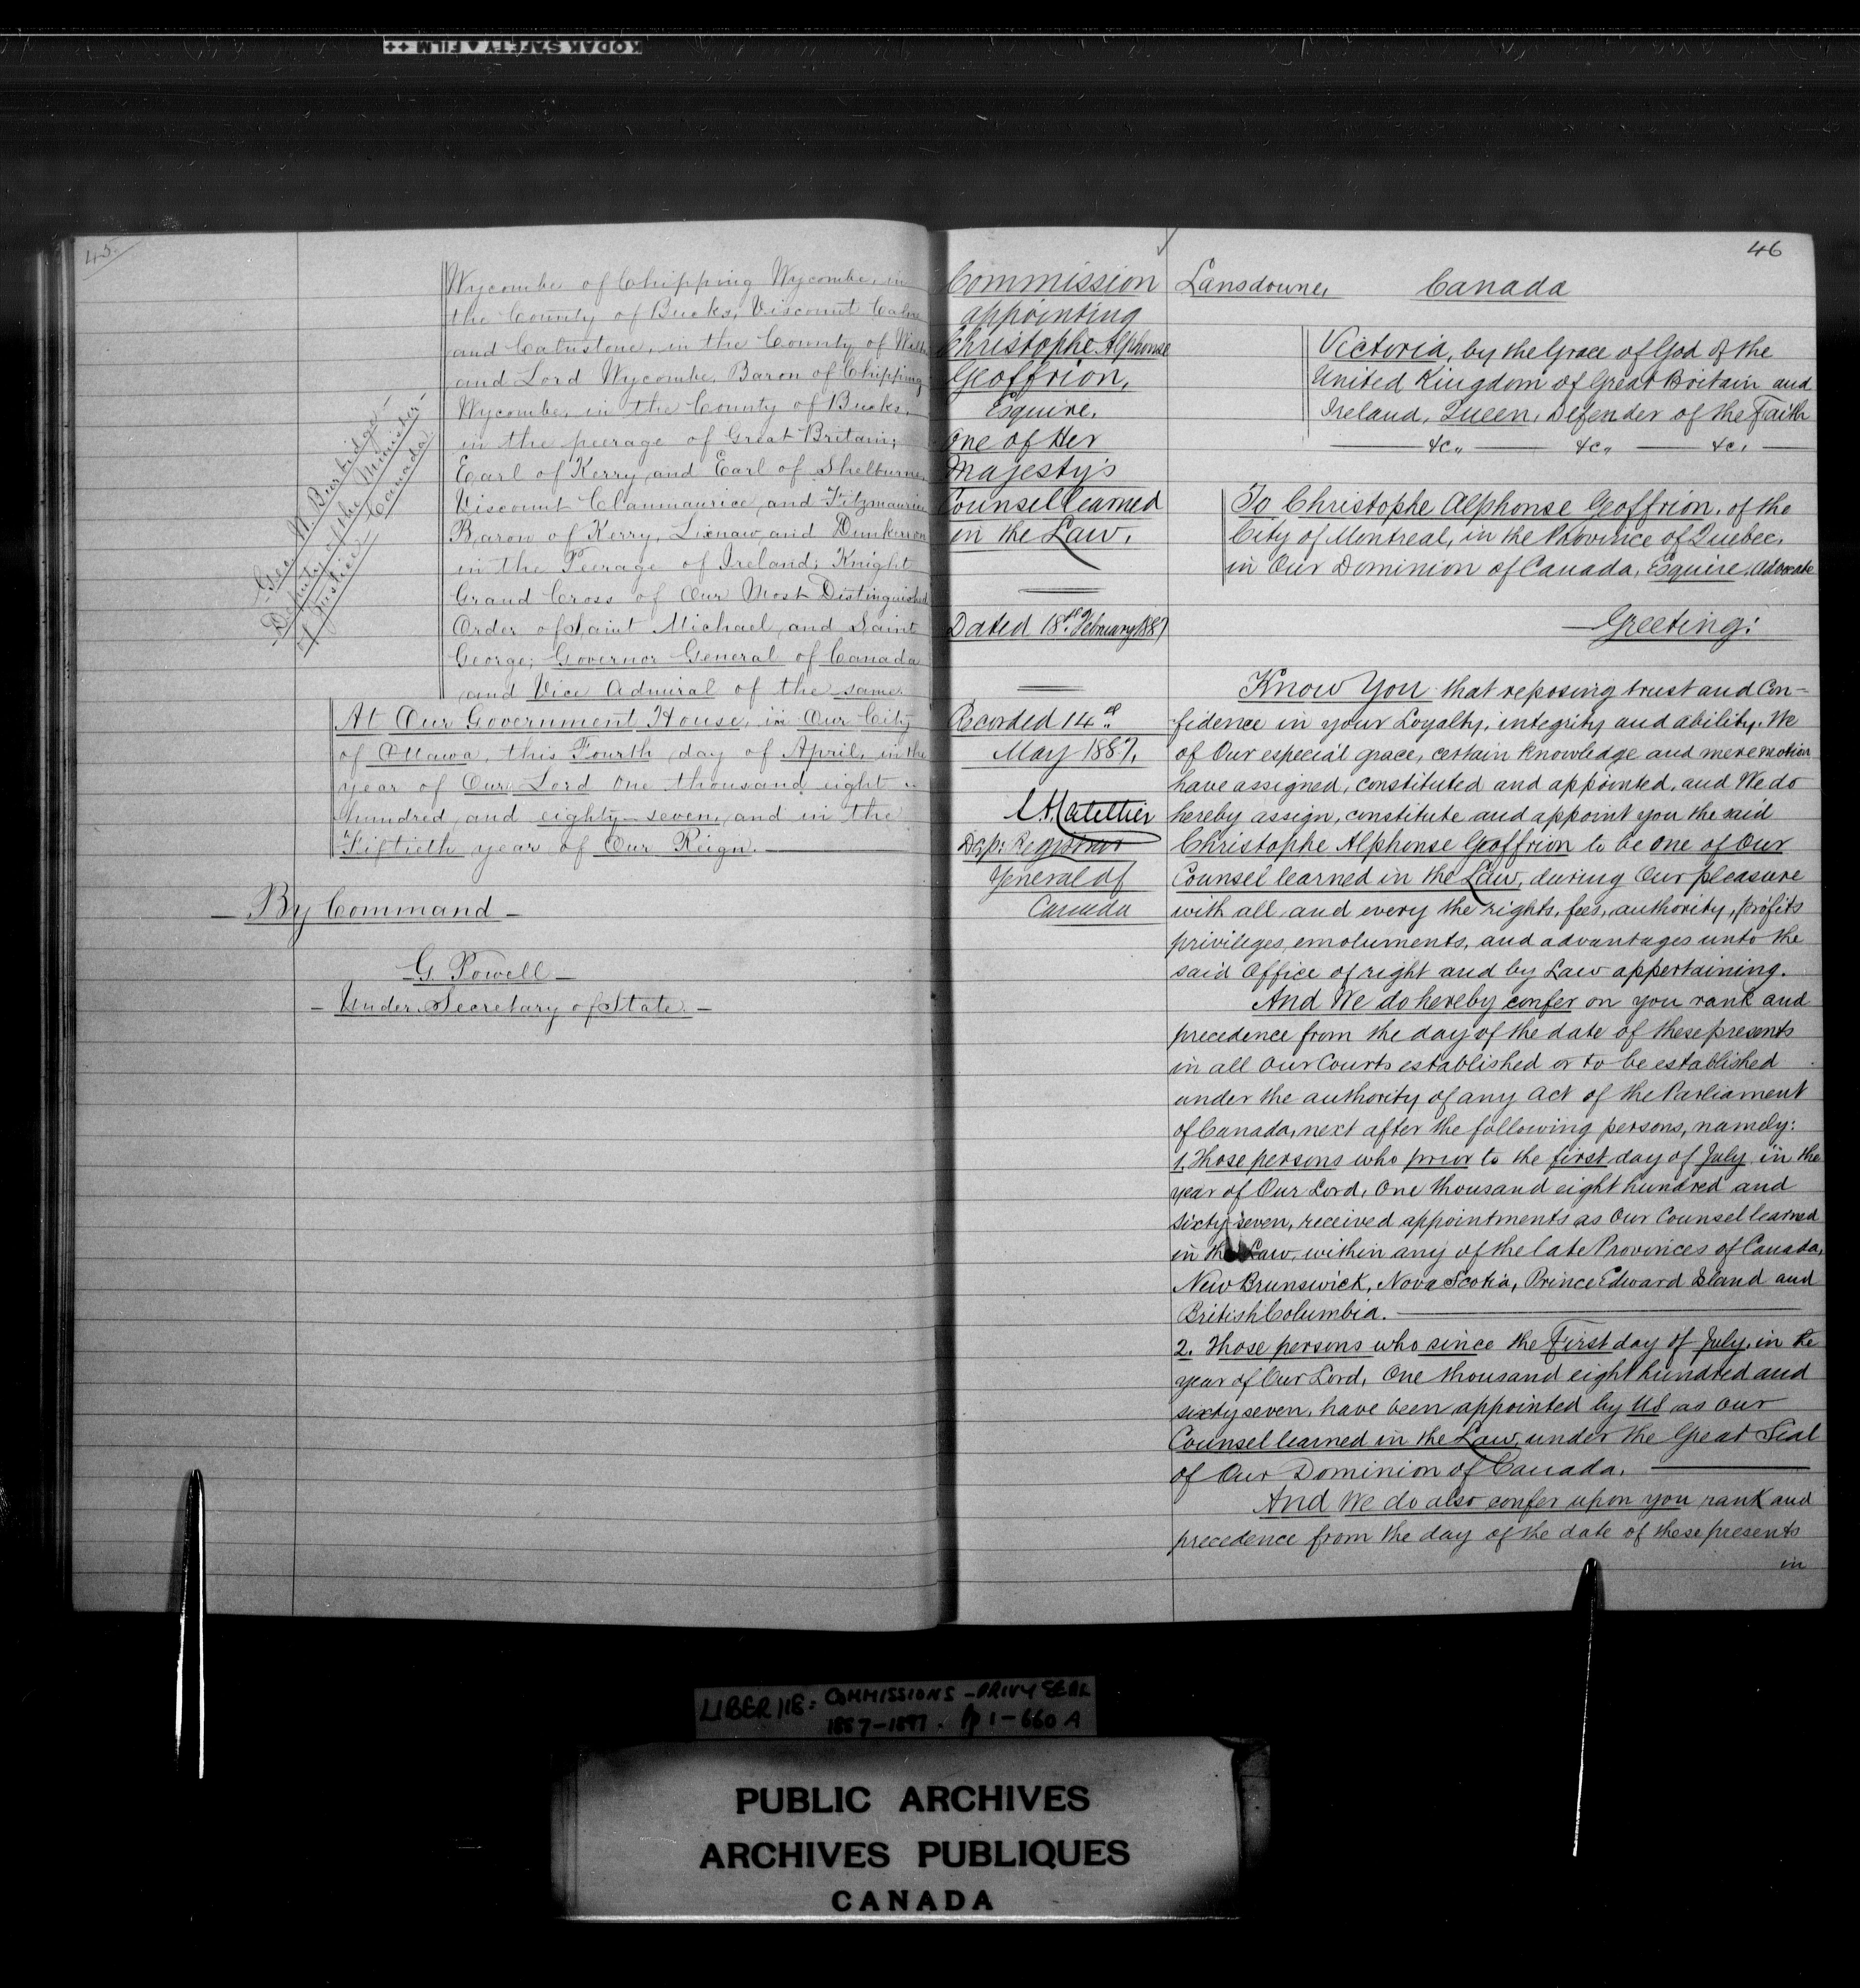 KODAK SAFETY FILM ++
45
Geo. W. Burbidge
Deputy of the Minister
of Justice, Canada
Wycombe of Chipping Wycombe, in
the County of Bucks, Viscount Calne
and Calnstone, in the County of Wilts
and Lord Wycombe, Baron of Chipping
Wycombe, in the County of Bucks,
in the peerage of Great Britain;
Earl of Kerry and Earl of Shelburne,
Viscount Clanmaurice and Fitzmaurice
Baron of Kerry, Lixnaw, and Dunkerron
in the Peerage of Ireland; Knight
Grand Cross of Our Most Distinguished
Order of Saint Michael and Saint
George; Governor General of Canada
and Vice Admiral of the same
At Our Government House, in Our City
of Ottawa, this Fourth day of April, in the
year of Our Lord One thousand eight
hundred and eighty-seven, and in the
Fiftieth year of Our Reign.
- By Command -
G. Powell -
- Under Secretary of State -
46
Commission
appointing
Christophe Alphonse
Geoffrion,
Esquire,
One of Her
Majesty's
Counsel learned
in the Law.
Dated 18th February 1887
Recorded 14th
May 1887.
Dep: Registrar
General of
Canada
Lansdowne, Canada
Victoria, by the Grace of God of the
United Kingdom of Great Britain and
Ireland, Queen, Defender of the Faith
&c, &c, &c,
To Christophe Alphonse Geoffrion, of the
City of Montreal, in the Province of Quebec,
in Our Dominion of Canada, Esquire, Advocate
Greeting:
Know You that reposing trust and Con-
fidence in your Loyalty, integrity and ability, We
of Our especial grace, certain knowledge and mere motion
have assigned, constituted and appointed, and We do
hereby assign, constitute and appoint you the said
Christophe Alphonse Geoffrion to be one of Our
Counsel learned in the Law, during Our pleasure
with all and every the rights, fees, authority, profits
privileges, emoluments, and advantages unto the
said Office of right and by Law appertaining.
And We do hereby confer on you rank and
precedence from the day of the date of these presents
in all Our Courts established or to be established
under the authority of any Act of the Parliament
of Canada, next after the following persons, namely:
1. Those persons who prior to the first day of July in the
year of Our Lord, One thousand eight hundred and
sixty seven, received appointments as Our Counsel learned
in the Law, within any of the late Provinces of Canada,
New Brunswick, Nova Scotia, Prince Edward Island and
British Columbia.
2. Those persons who since the First day of July, in the
year of Our Lord, One thousand eight hundred and
sixty seven, have been appointed by Us as Our
Counsel learned in the Law, under the Great Seal
of Our Dominion of Canada.
And We do also confer upon you rank and
precedence from the day of the date of these presents
in
LIBER 118: COMMISSIONS - PRIVY SEAL
1887-1897. pp 1-660 A
PUBLIC ARCHIVES
ARCHIVES PUBLIQUES
CANADA